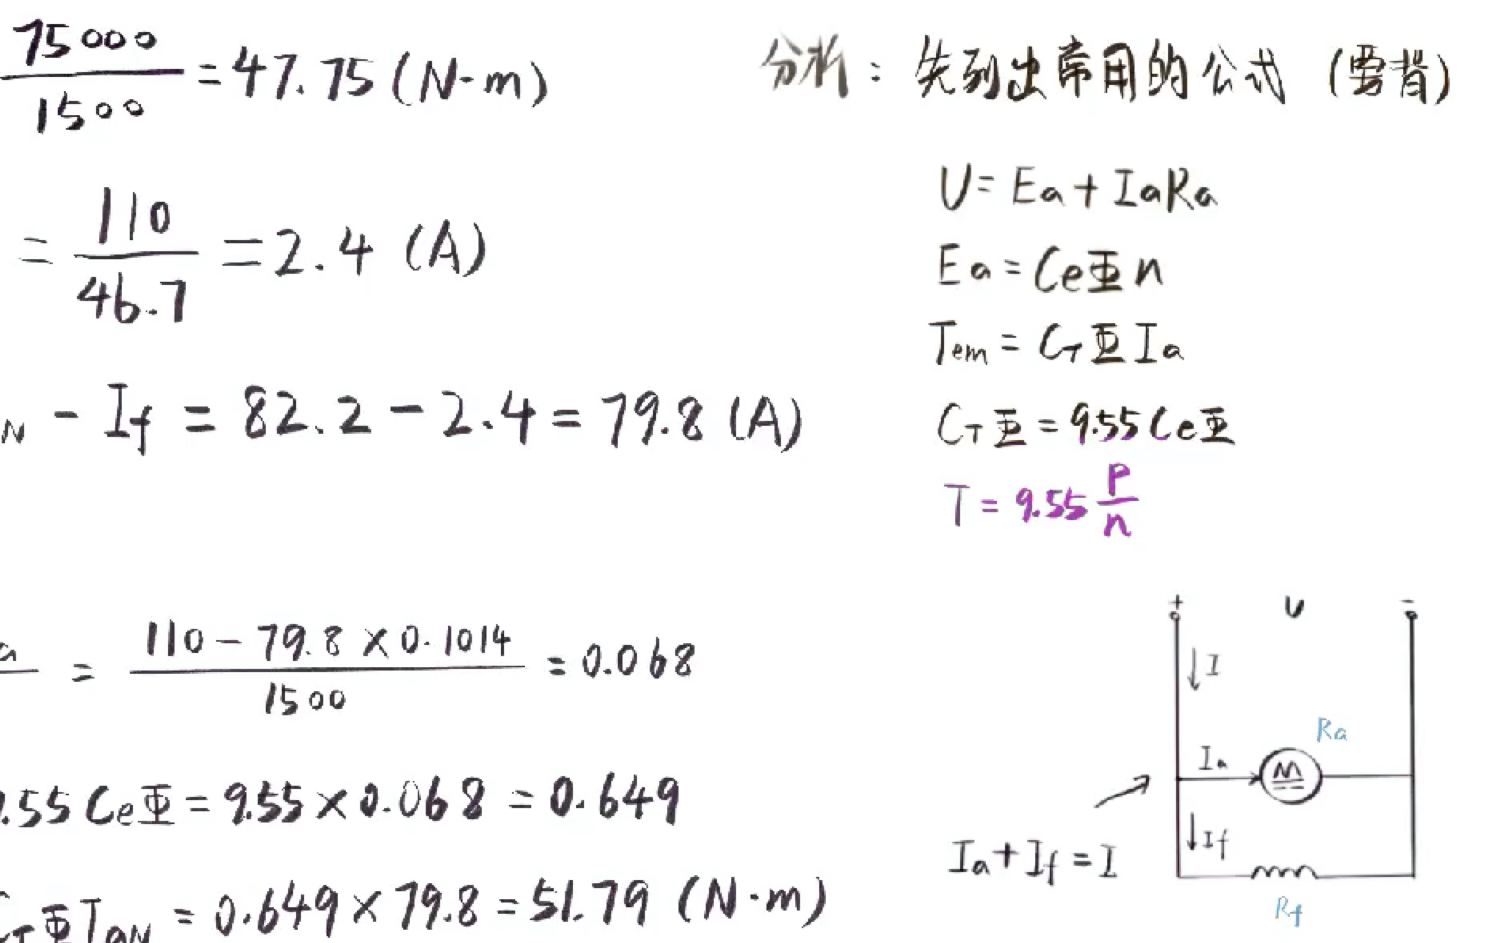 75000/1500 = 47.75 (N·m)
= 110/46.7 = 2.4 (A)
N - If = 82.2 - 2.4 = 79.8 (A)
a = (110 - 79.8 × 0.1014)/1500 = 0.068
.55 CeΦ = 9.55 × 0.068 = 0.649
CTΦIaN = 0.649 × 79.8 = 51.79 (N·m)
分析：先列出常用的公式（要背）
U = Ea + IaRa
Ea = CeΦn
Tem = CTΦIa
CTΦ = 9.55CeΦ
T = 9.55 P/n
+ U -
↓I
Ra
Ia M
↓If
Ia + If = I
Rf